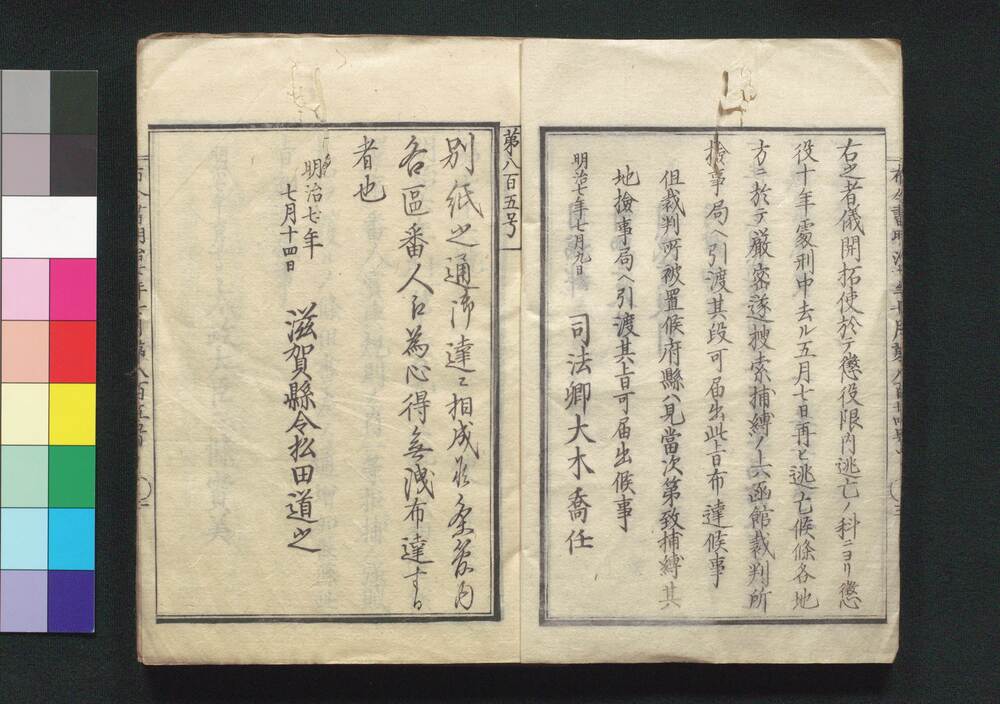 右之者儀開拓使於テ懲役限内逃亡ノ科ニヨリ懲
役十年處刑中去ル五月七日再ヒ逃亡候條各地
方ニ於テ厳密遂捜索捕縛ノ上函館裁判所
撿事局ヘ引渡其段可届出此旨布達候事
但裁判所被置候府縣ハ見當次第致捕縛其
地撿事局ヘ引渡其旨可届出候事
明治七年七月九日
司法卿大木喬任
第八百五号
別紙之通御達ニ相成候条管内
各區番人
為心得無洩布達する
者也
明治七年
七月十四日
滋賀縣令松田道之